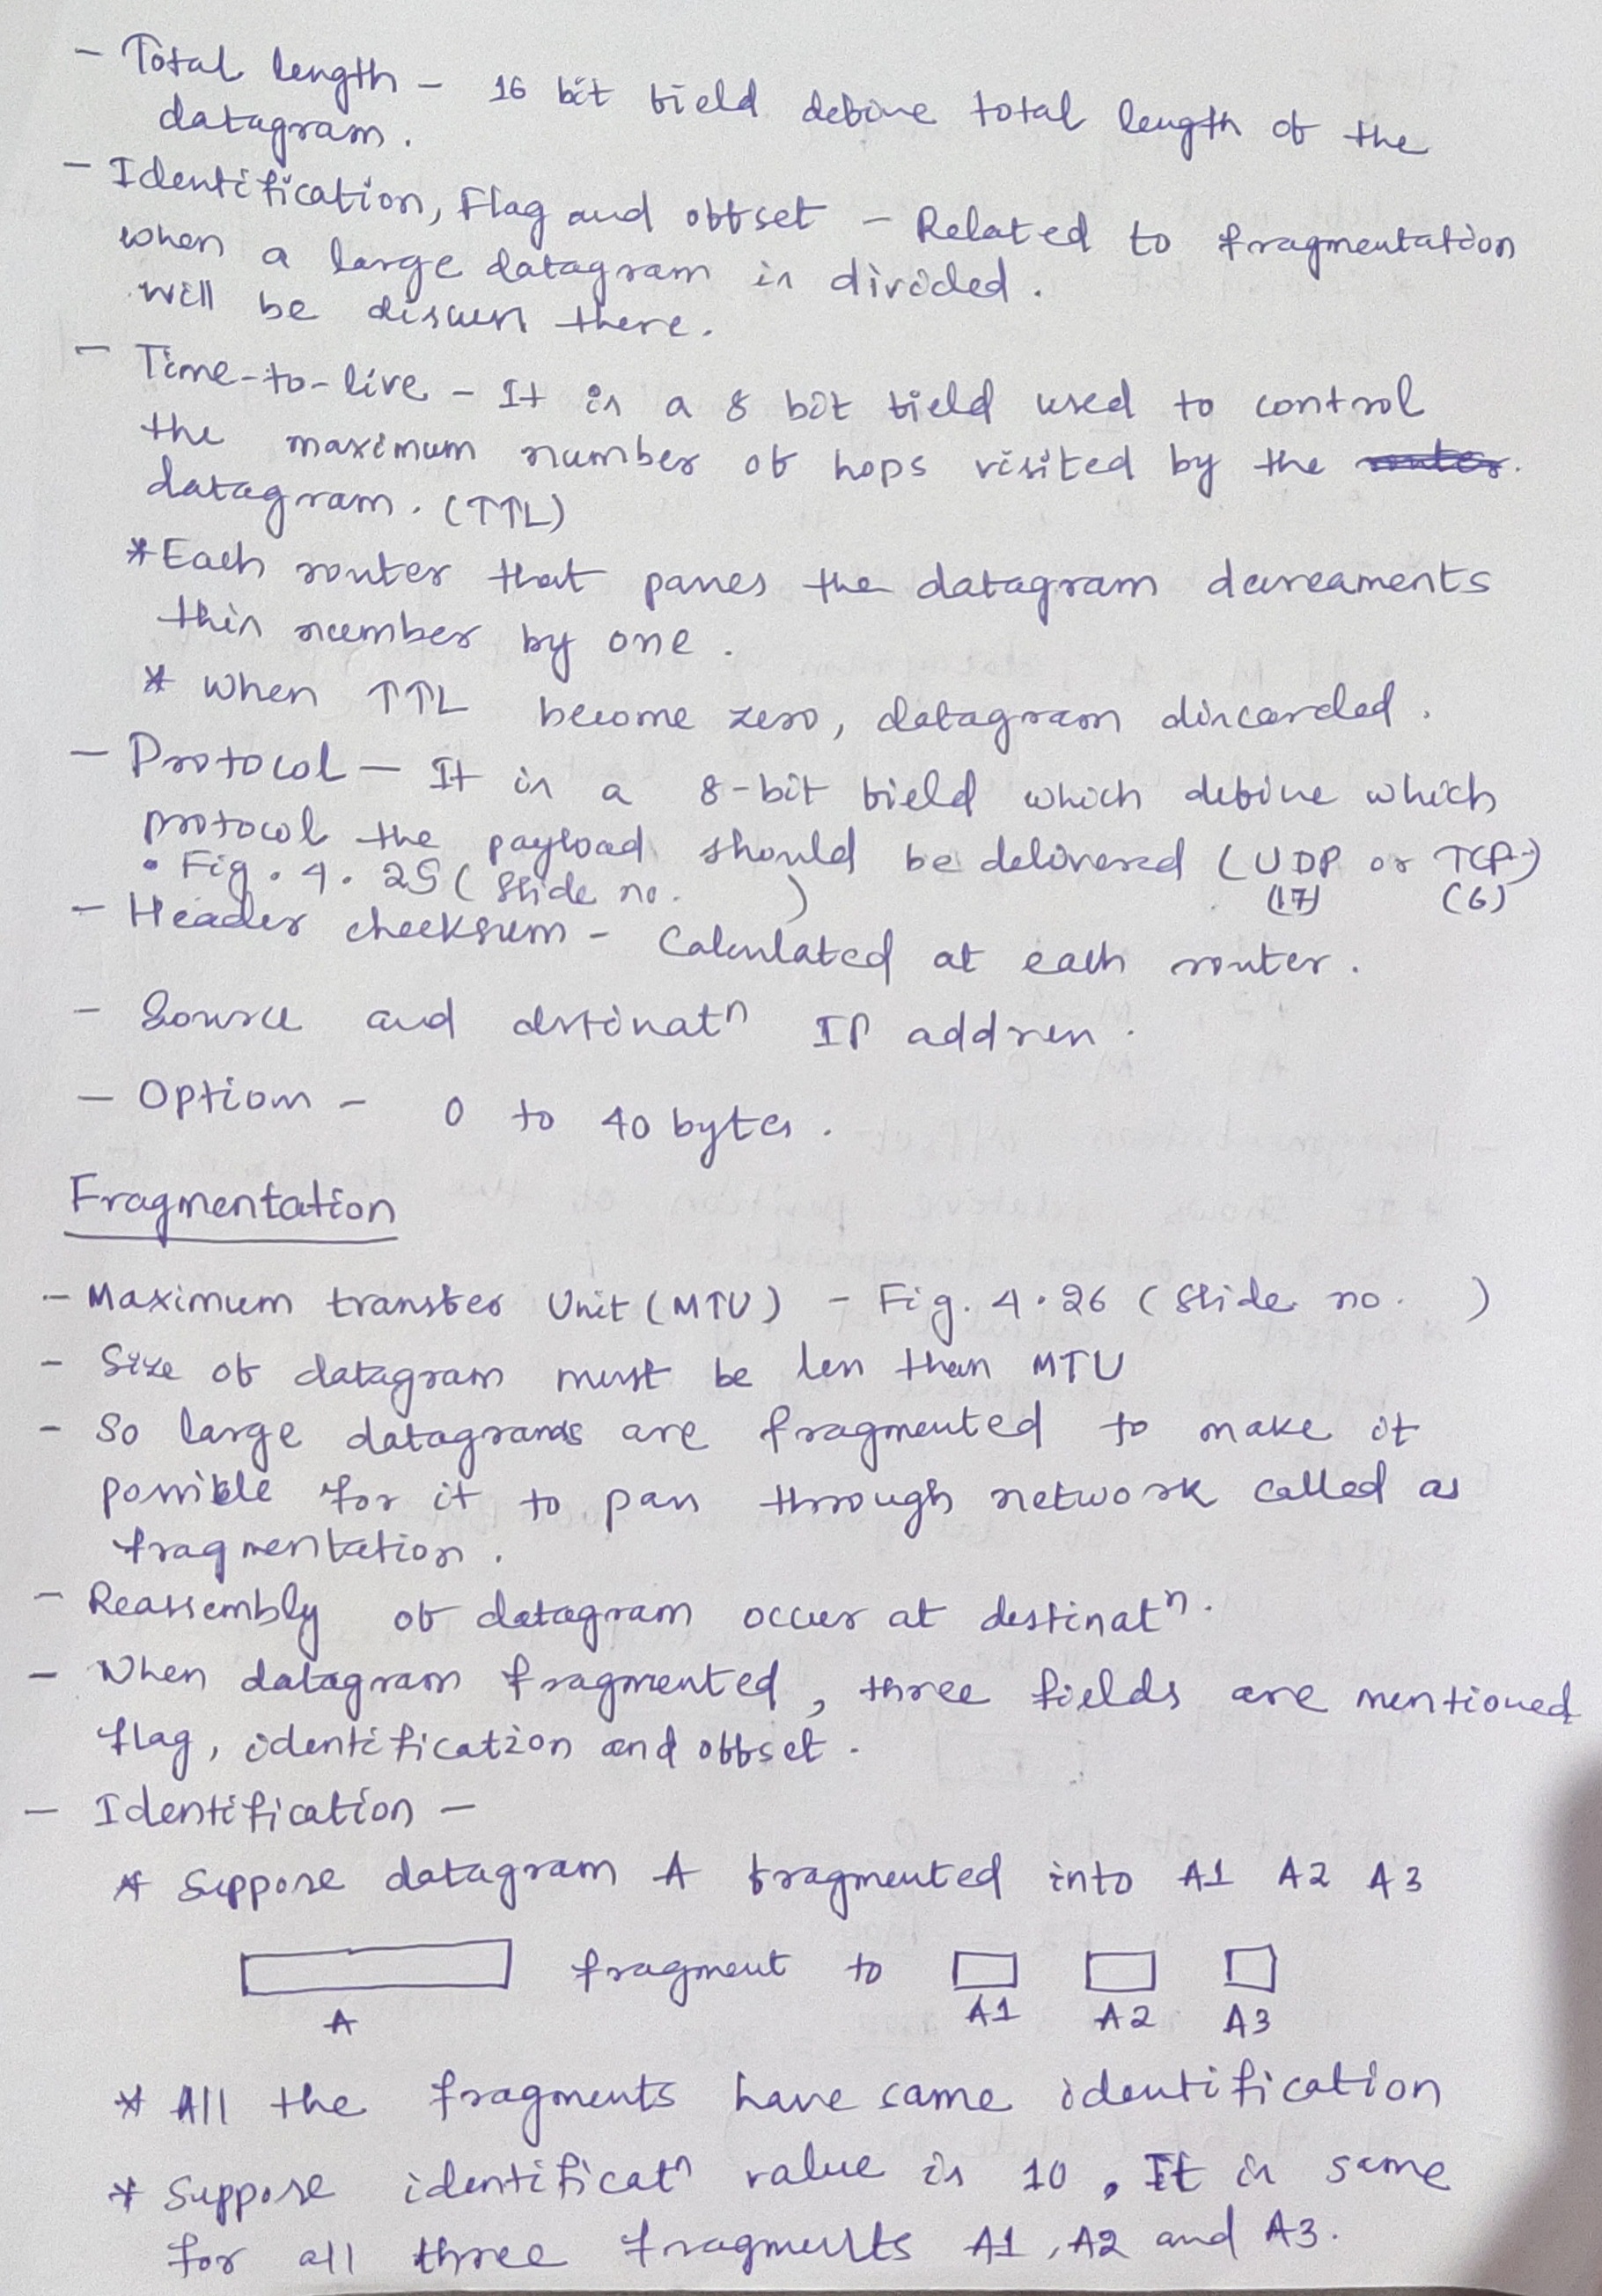 - Total length - 16 bit field define total length of the
datagram.
- Identification, Flag and offset - Related to fragmentation
when a large datagram is divided.
will be discuss there.
- Time-to-live - It is a 8 bit field used to control
the maximum number of hops visited by the router.
datagram. (TTL)
* Each router that passes the datagram decreaments
this number by one.
* When TTL become zero, datagram discarded.
- Protocol - It is a 8-bit field which define which
protocol the payload should be delivered (UDP or TCP)
(17) (6)
• Fig. 4.25 (Slide no. )
- Header checksum - Calculated at each router.
- Source and destinatⁿ IP address.
- Options - 0 to 40 bytes.
Fragmentation
- Maximum transfer Unit (MTU) - Fig. 4.26 (Slide no. )
- Size of datagram must be less than MTU
- So large datagrams are fragmented to make it
possible for it to pass through network called as
fragmentation.
- Reassembly of datagram occur at destinatⁿ.
- When datagram fragmented, three fields are mentioned
flag, identification and offset.
- Identification -
* Suppose datagram A fragmented into A1 A2 A3
fragment to
A A1 A2 A3
* All the fragments have same identification
* Suppose identificatⁿ value is 10. It is same
for all three fragments A1, A2 and A3.